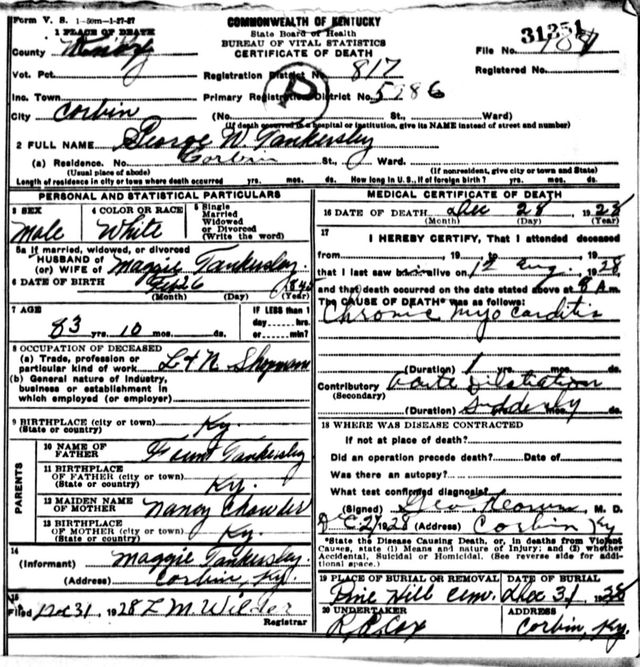 Form V. S. 1-50m-1-27-27
COMMONWEALTH OF KENTUCKY
State Board of Health
BUREAU OF VITAL STATISTICS
CERTIFICATE OF DEATH
31351
File No.
1 PLACE OF DEATH
County Knox
Registered No.
Vot. Pct.
Registration District No. 817
P
Inc. Town
Primary Registration District No. 5186
City Corbin (No. St., Ward)
(If death occurred in a hospital or institution, give its NAME instead of street and number)
2 FULL NAME George W. Tankersley
(a) Residence. No. Corbin St., Ward.
(Usual place of abode) (If nonresident, give city or town and State)
Length of residence in city or town where death occurred yrs. mos. ds. How long in U. S., if of foreign birth? yrs. mos. ds.
PERSONAL AND STATISTICAL PARTICULARS
3 SEX
Male
4 COLOR OR RACE
White
5 Single
Married
Widowed
or Divorced
(Write the word)
5a If married, widowed, or divorced
HUSBAND of
(or) WIFE of Maggie Tankersley
6 DATE OF BIRTH Feb 26 1845
(Month) (Day) (Year)
7 AGE
83 yrs. 10 mos. ds.
IF LESS than 1
day hrs.
or min.?
8 OCCUPATION OF DECEASED
(a) Trade, profession or
particular kind of work L & N Shopman
(b) General nature of industry,
business or establishment in
which employed (or employer)
9 BIRTHPLACE (city or town)
(State or country) Ky.
PARENTS
10 NAME OF
FATHER Fount Tankersley
11 BIRTHPLACE
OF FATHER (city or town)
(State or country) Ky.
12 MAIDEN NAME
OF MOTHER Nancy Chowder
13 BIRTHPLACE
OF MOTHER (city or town)
(State or country) Ky.
14
(Informant) Maggie Tankersley
(Address) Corbin, Ky.
15
Filed Dec 31, 1928 L M. Wilder
Registrar
MEDICAL CERTIFICATE OF DEATH
16 DATE OF DEATH Dec 28, 1928
(Month) (Day) (Year)
17
I HEREBY CERTIFY, That I attended deceased
from , 19 , to , 19
that I last saw him alive on 12 Aug. 1928,
and that death occurred on the date stated above at 8 A m.
The CAUSE OF DEATH* was as follows:
Chronic myocarditis
(Duration) 1 yrs. mos. ds.
Contributory acute dilatation
(Secondary)
(Duration) Suddenly
18 WHERE WAS DISEASE CONTRACTED
If not at place of death?
Did an operation precede death? Date of
Was there an autopsy?
What test confirmed diagnosis?
(Signed) Geo M. D.
1928 (Address) Corbin Ky
*State the Disease Causing Death, or, in deaths from Violent
Causes, state (1) Means and nature of Injury; and (2) whether
Accidental, Suicidal or Homicidal. (See reverse side for additional space.)
19 PLACE OF BURIAL OR REMOVAL
Pine Hill Cem.
DATE OF BURIAL
Dec 31, 1928
20 UNDERTAKER
Cox
ADDRESS
Corbin, Ky.